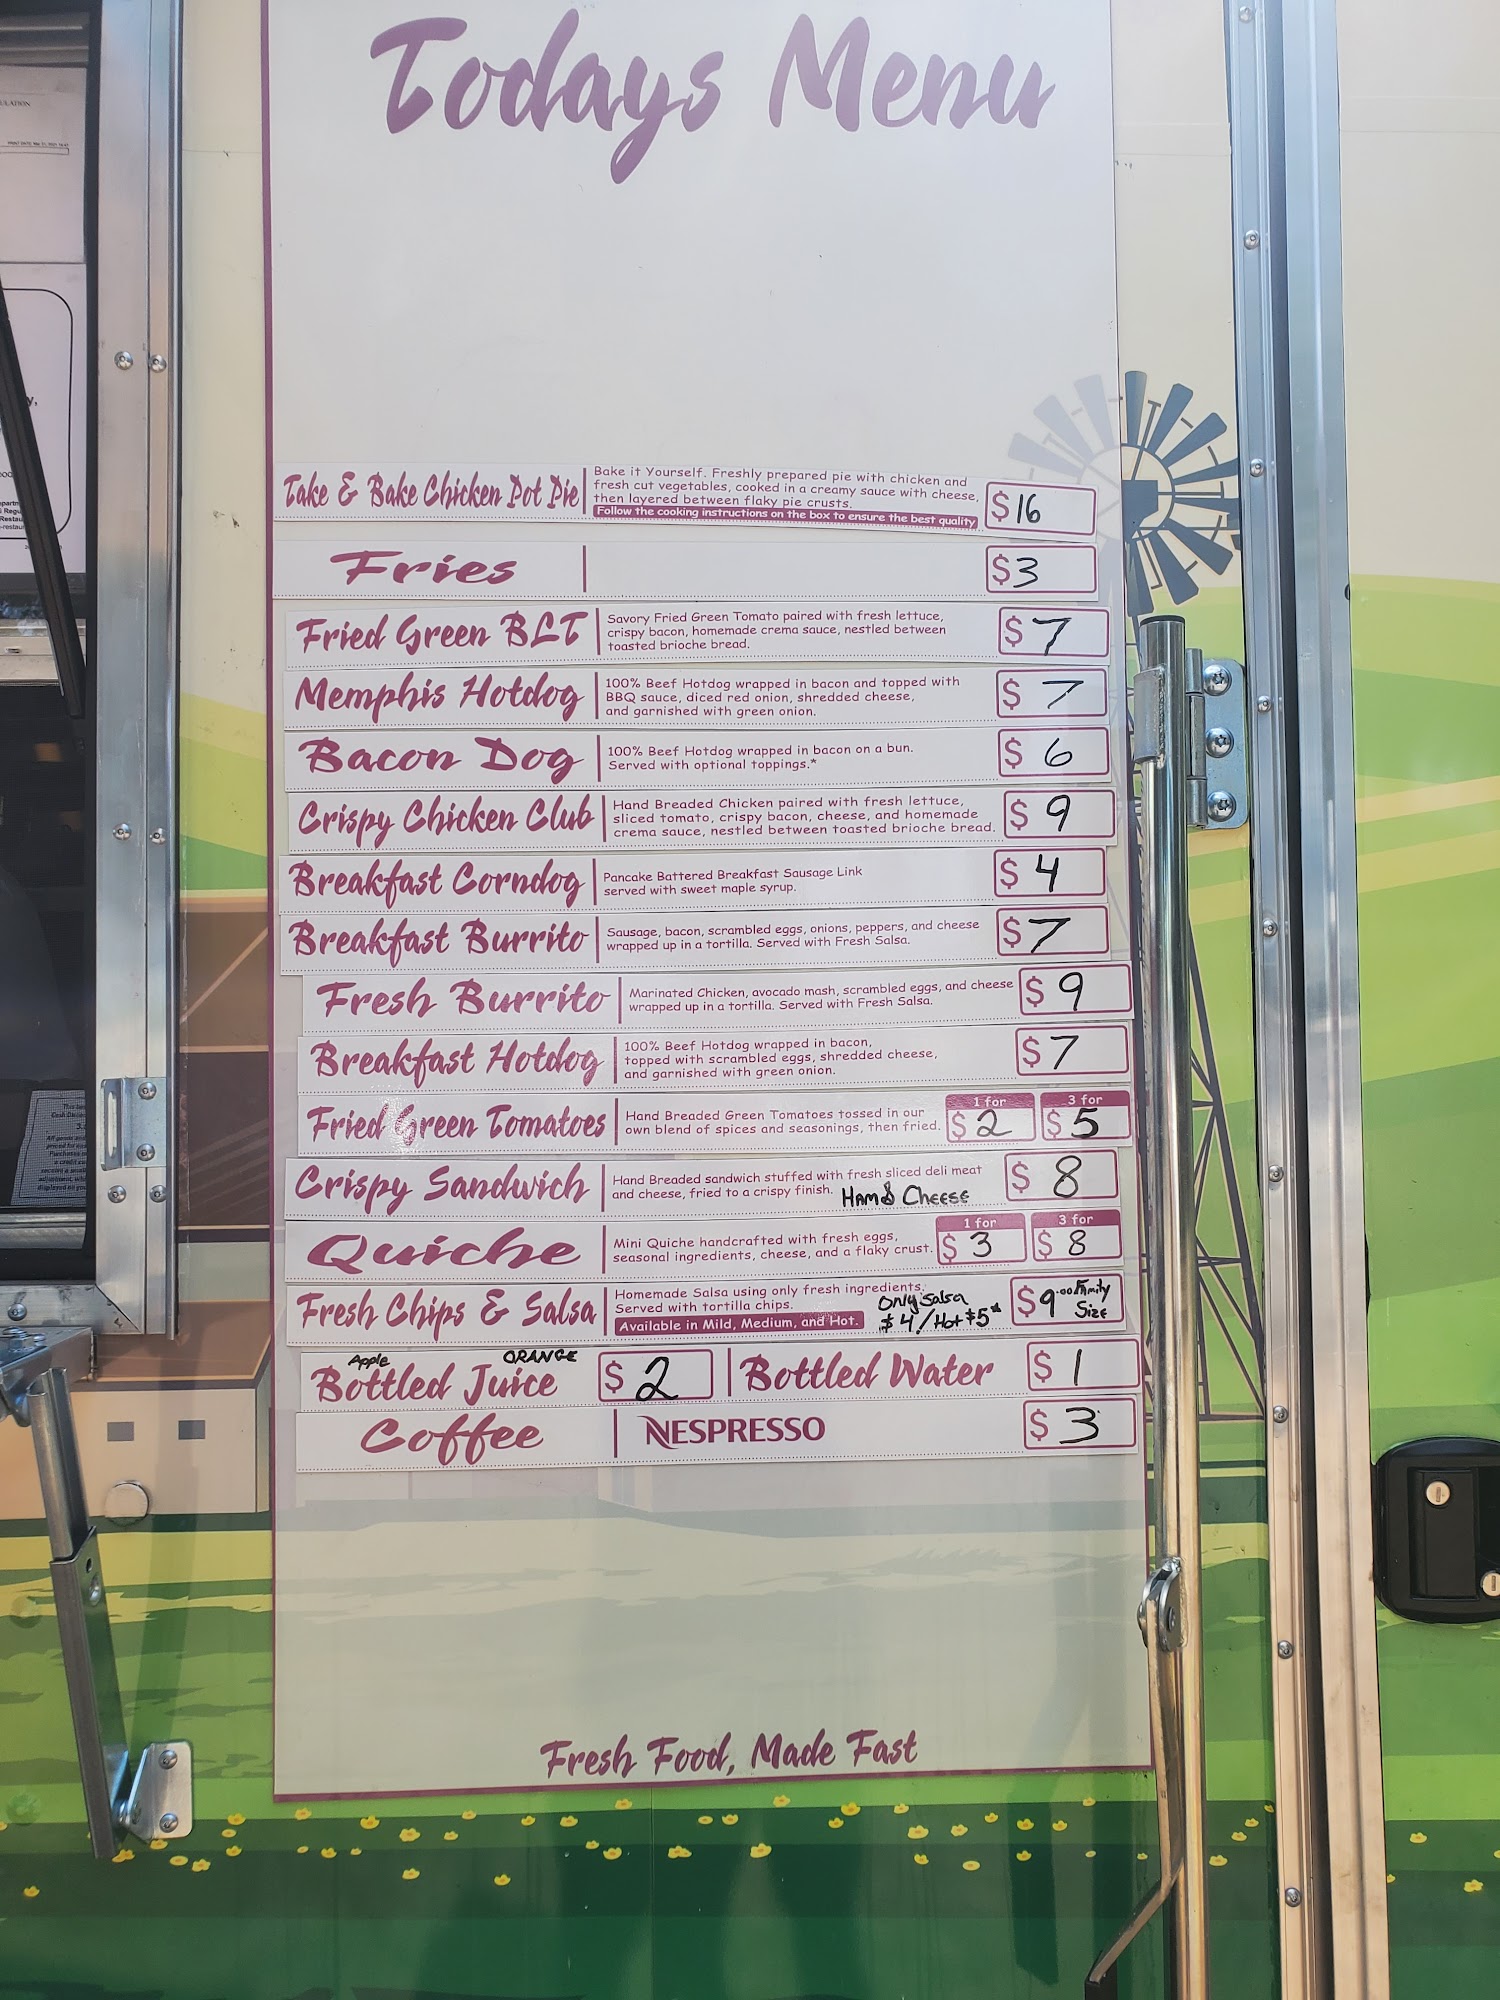 Todays Menu
Take & Bake Chicken Pot Pie
Bake it Yourself. Freshly prepared pie with chicken and
fresh cut vegetables, cooked in a creamy sauce with cheese,
then layered between flaky pie crusts.
Follow the cooking instructions on the box to ensure the best quality
$16
Fries
$3
Fried Green BLT
Savory Fried Green Tomato paired with fresh lettuce,
crispy bacon, homemade crema sauce, nestled between
toasted brioche bread.
$7
Memphis Hotdog
100% Beef Hotdog wrapped in bacon and topped with
BBQ sauce, diced red onion, shredded cheese,
and garnished with green onion.
$7
Bacon Dog
100% Beef Hotdog wrapped in bacon on a bun.
Served with optional toppings.*
$6
Crispy Chicken Club
Hand Breaded Chicken paired with fresh lettuce,
sliced tomato, crispy bacon, cheese, and homemade
crema sauce, nestled between toasted brioche bread.
$9
Breakfast Corndog
Pancake Battered Breakfast Sausage Link
served with sweet maple syrup.
$4
Breakfast Burrito
Sausage, bacon, scrambled eggs, onions, peppers, and cheese
wrapped up in a tortilla. Served with Fresh Salsa.
$7
Fresh Burrito
Marinated Chicken, avocado mash, scrambled eggs, and cheese
wrapped up in a tortilla. Served with Fresh Salsa.
$9
Breakfast Hotdog
100% Beef Hotdog wrapped in bacon,
topped with scrambled eggs, shredded cheese,
and garnished with green onion.
$7
Fried Green Tomatoes
Hand Breaded Green Tomatoes tossed in our
own blend of spices and seasonings, then fried.
1 for
$2
3 for
$5
Crispy Sandwich
Hand Breaded sandwich stuffed with fresh sliced deli meat
and cheese, fried to a crispy finish. HAM & CHEESE
$8
Quiche
Mini Quiche handcrafted with fresh eggs,
seasonal ingredients, cheese, and a flaky crust.
1 for
$3
3 for
$8
Fresh Chips & Salsa
Homemade Salsa using only fresh ingredients.
Served with tortilla chips.
Available in Mild, Medium, and Hot.
Only Salsa
$4/Hot $5*
$9.00 Family
Size
Apple ORANGE
Bottled Juice
$2
Bottled Water
$1
Coffee
NESPRESSO
$3
Fresh Food, Made Fast